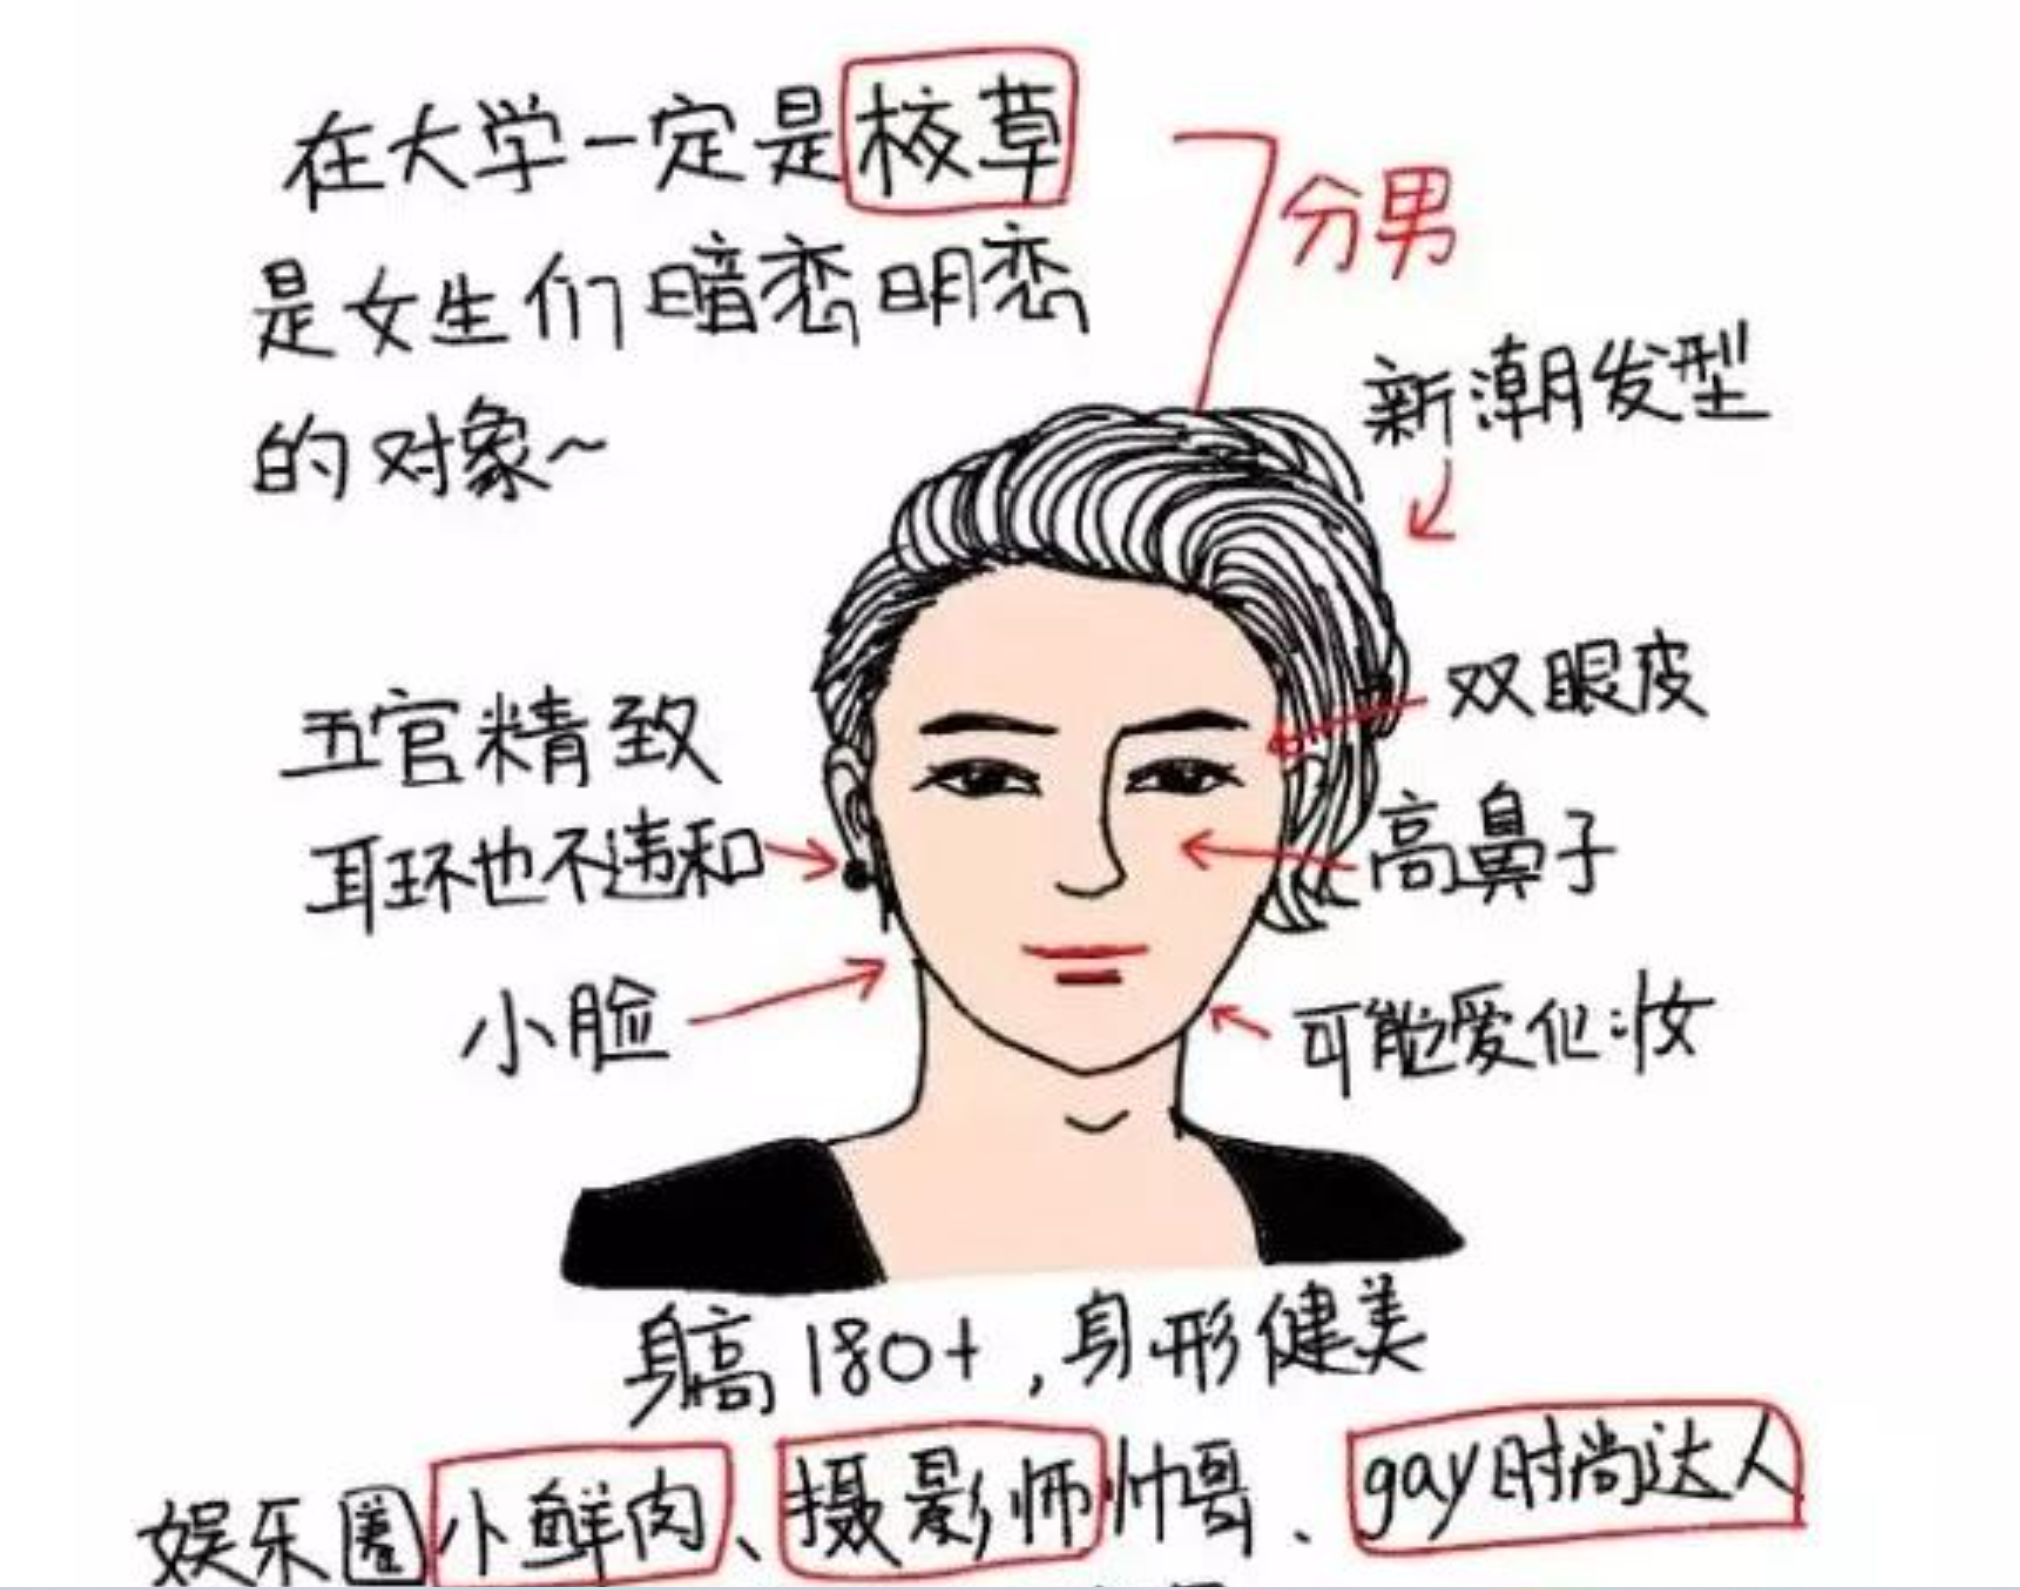 在大学一定是校草
是女生们暗恋明恋
的对象~
7分男
新潮发型
双眼皮
五官精致
耳环也不违和
高鼻子
小脸
可能爱化妆
身高180+,身形健美
娱乐圈小鲜肉、摄影师帅哥、gay时尚达人